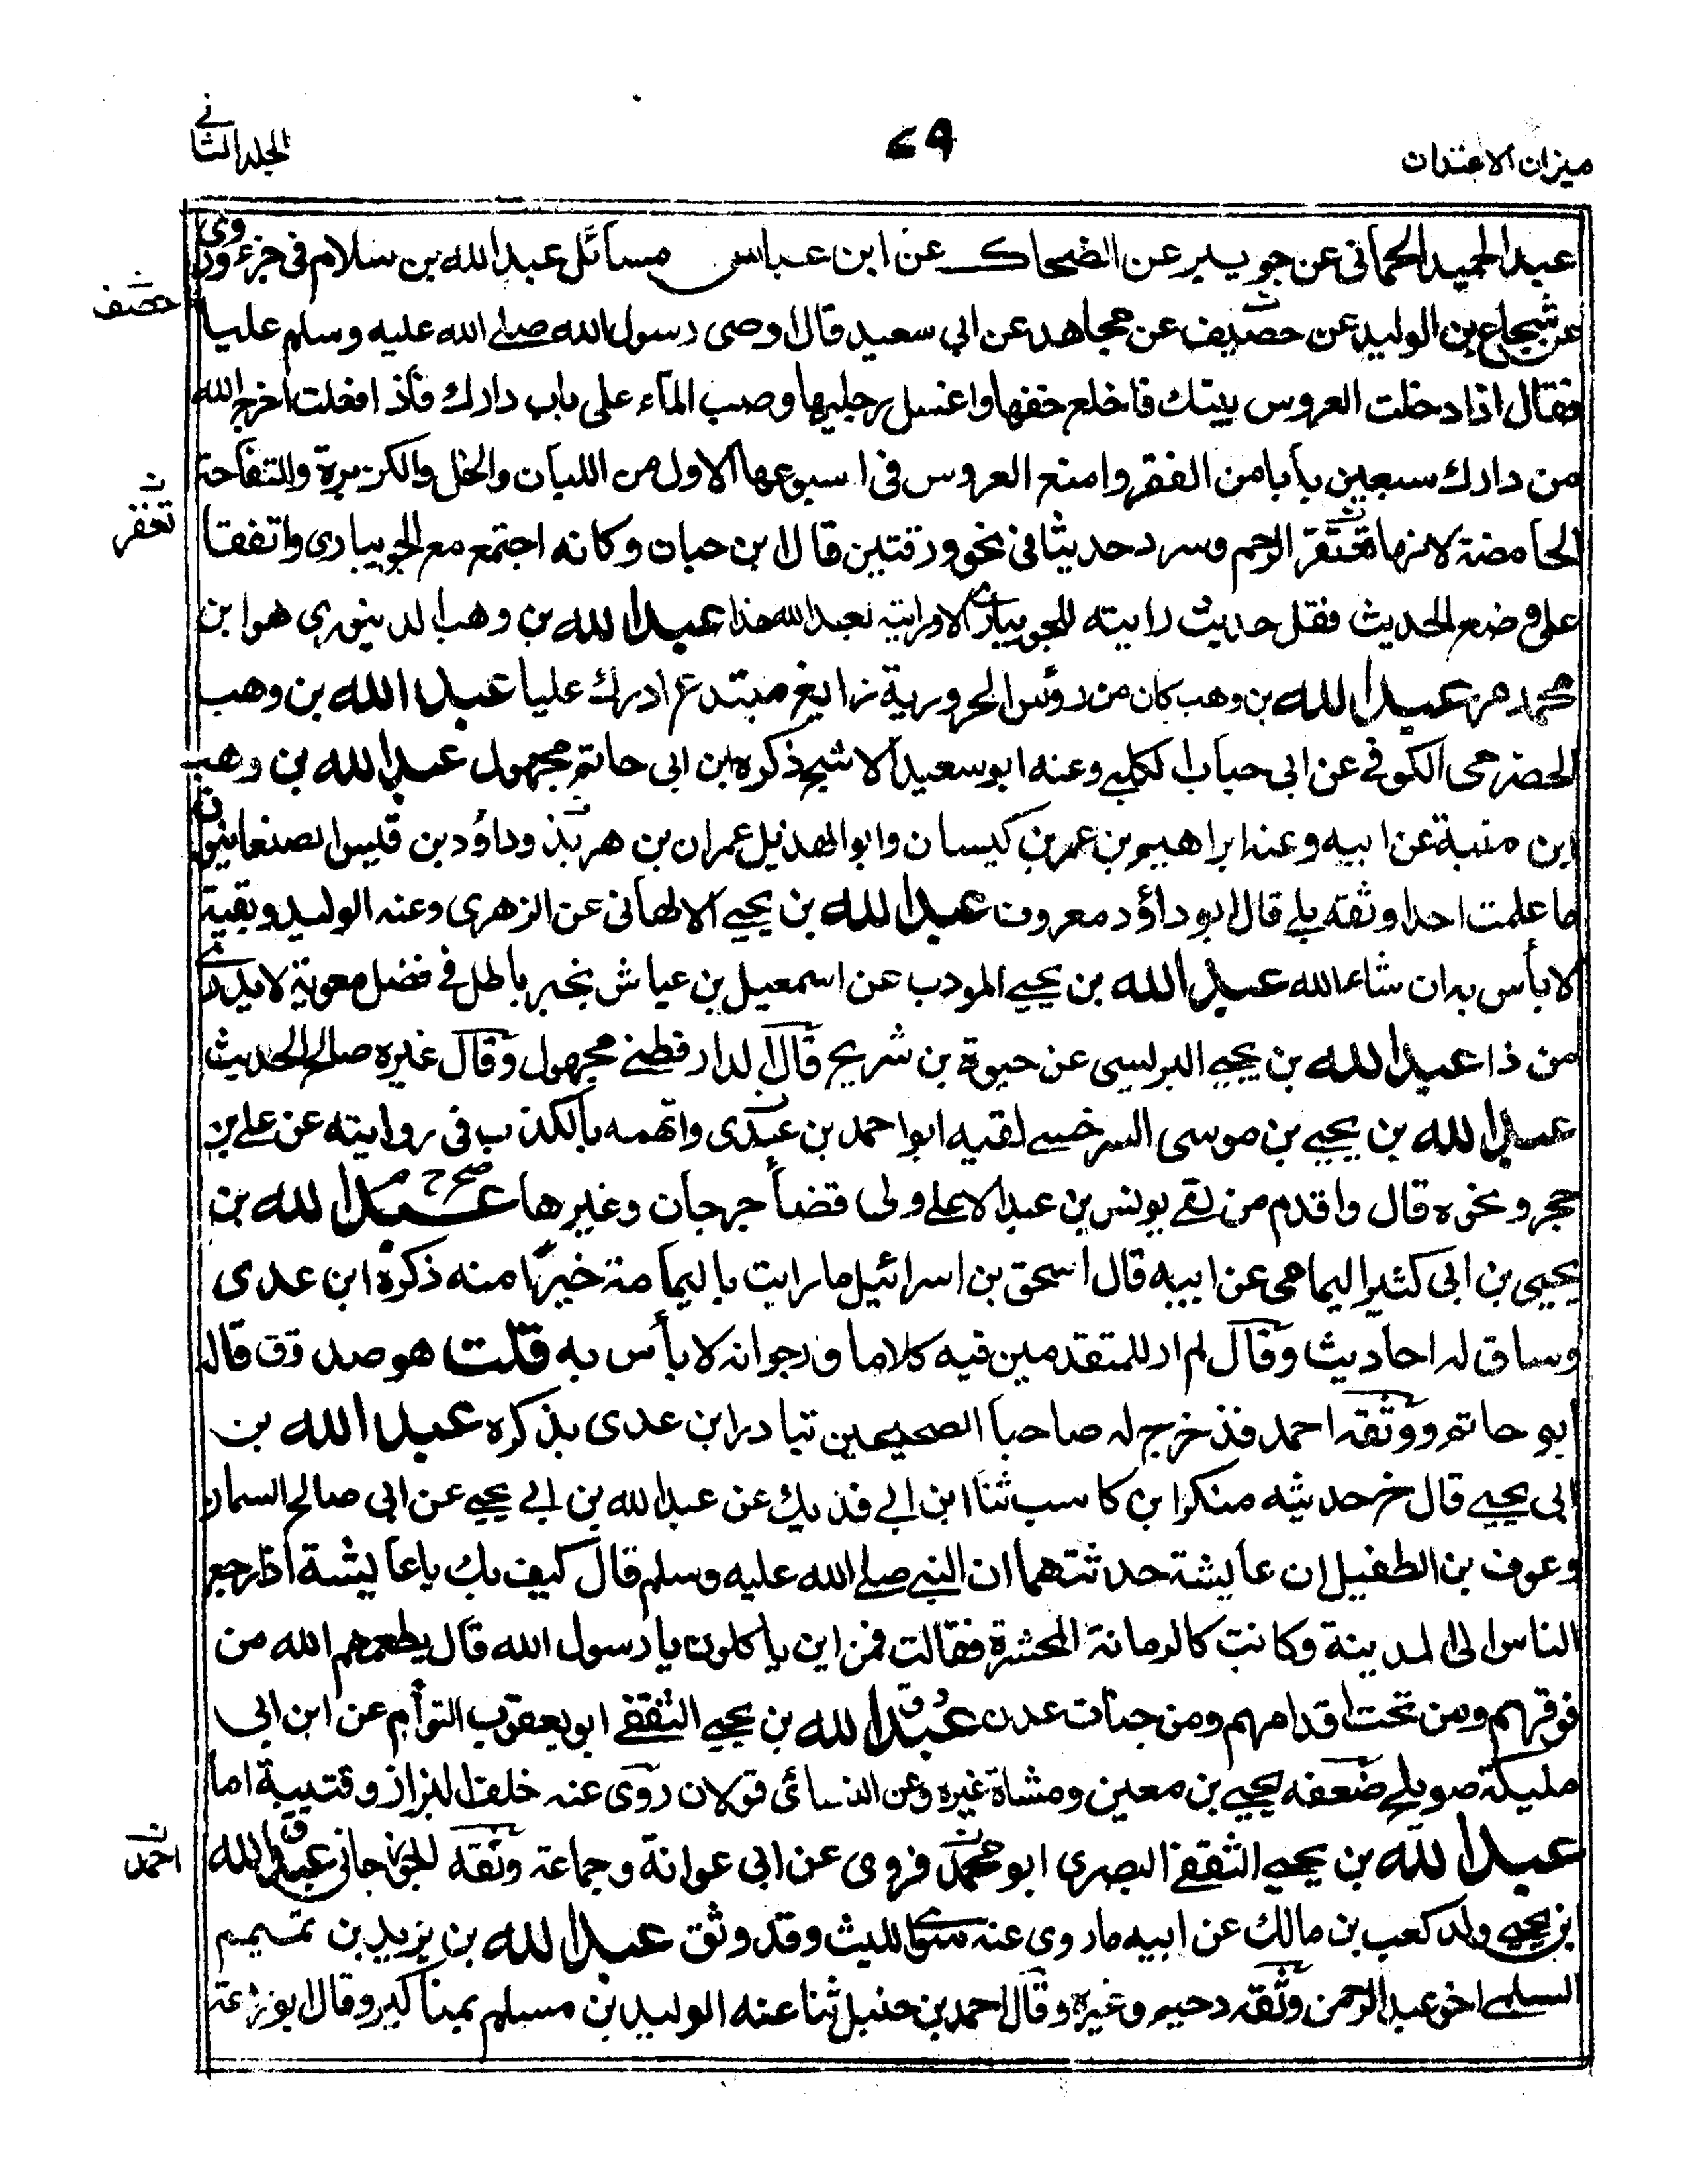 ميزان الاعتدال
٧٩
الجلد الثانى
عبد الحميد الحمانى عن جويبر عن الضحاك عن ابن عباس مسائل عبد الله بن سلام فى جزء وروى
خصيف
عن شجاع بن الوليد عن خصيف عن مجاهد عن ابى سعيد قال اوصى رسول الله صلے الله عليه وسلم عليا
فقال اذا دخلت العروس بيتك فاخلع خفها واغسل رجليها وصب الماء على باب دارك فاذا فعلت اخرج الله
من دارك سبعين بابا من الفقر وامنع العروس فى اسبوعها الاول من اللبان والخل والكزبرة والتفاحة
الحامضة لانها تعقر الرحم وسرد حديثا فى نحو ورقتين قال ابن حبان وكانه اجتمع مع الجويبارى واتفقا
على وضع الحديث فقل حديث رايته للجويبارى الا ورايته لعبد الله هذا عبد الله بن وهب الدينورى هو ابن
محمد مر عبد الله بن وهب كان من رؤس الحرورية زايغ مبتدع ادرك عليا عبد الله بن وهب
الحضرمى الكوفے عن ابى حباب الكلبے وعنه ابو سعيد الاشج ذكره ابن ابى حاتم مجهول عبد الله بن وهب
ابن منبة عن ابيه وعنه ابراهيم بن عمر بن كيسان وابو الهذيل عمران بن هربذ وداؤد بن قيس الصنعانيون
ما علمت احدا وثقه بلے قال ابو داؤد معروف عبد الله بن يحيے الالهانى عن الزهرى وعنه الوليد وبقية
لا بأس به ان شاء الله عبد الله بن يحيے المودب عن اسمعيل بن عياش بخبر باطل فے فضل معوية لا يدرى
من ذا عبد الله بن يحيے البرلسى عن حيوة بن شريح قال الدارقطنے مجهول وقال غيره صالح الحديث
عبد الله بن يحيے بن موسى السرخسے لقيه ابو احمد بن عدى واتهمه بالكذب فى روايته عن علے بن
حجر ونحوه قال واقدم من لقے يونس بن عبد الاعلے ولى قضا جرجان وغيرها عبد الله بن
يحيى بن ابى كثير اليمامى عن ابيه قال اسحق بن اسرائيل ما رايت باليمامة خيرا منه ذكره ابن عدى
وساق له احاديث وقال لم ار للمتقدمين فيه كلاما وارجو انه لا بأس به قلت هو صدوق قاله
ابو حاتم ووثقه احمد فذ خرج له صاحبا الصحيحين تبادر ابن عدى بذكره عبد الله بن
ابى يحيے قال خ حديثه منكر ابن كاسب ثنا ابن ابے فديك عن عبد الله بن ابے يحيے عن ابى صالح السمان
وعوف بن الطفيل ان عايشة حدثتهما ان النبے صلے الله عليه وسلم قال كيف بك يا عايشة اذا رجع
الناس الى المدينة وكانت كالرمانة المحشرة فقالت فمن اين ياكلون يا رسول الله قال يطعمهم الله من
فوقهم ومن تحت اقدامهم ومن جنات عدن عبد الله بن يحيے الثقفے ابو يعقوب التوأم عن ابن ابى
مليكة صويلح ضعفه يحيے بن معين ومشاة غيره وعن النسائى قولان روى عنه خلف البزاز وقتيبة اما
عبد الله بن يحيے الثقفے البصرى ابو محمد فروى عن ابى عوانة وجماعة وثقه الجوزجانى عبد الله
احمد
بن يحيے ولد كعب بن مالك عن ابيه ما روى عنه سوى الليث وقد وثق عبد الله بن يزيد بن تميم
السلمے اخو عبد الرحمن وثقه دحيم وغيره وقال احمد بن حنبل ثنا عنه الوليد بن مسلم بمناكير وقال ابو زرعة